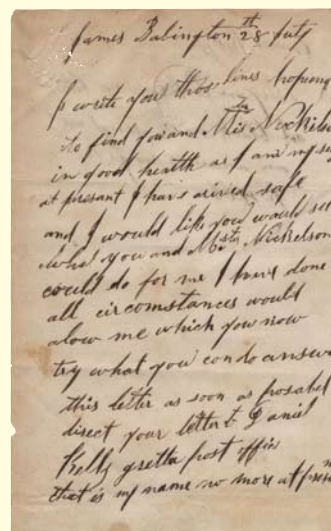 James Babington 28th July
I write you thos lines hopong
to find you and Mis Nickelso
in good health as I am myse
at presant I have arived safe
and I would like you would se
what you and Mstr Nickelson
could do for me I have done
all circomstances would
alow me which you now
try what you can do answe
this letter as soon as posabel
direct your letter t Daniel
Kelly gretta post offis
that is my name no more at pres